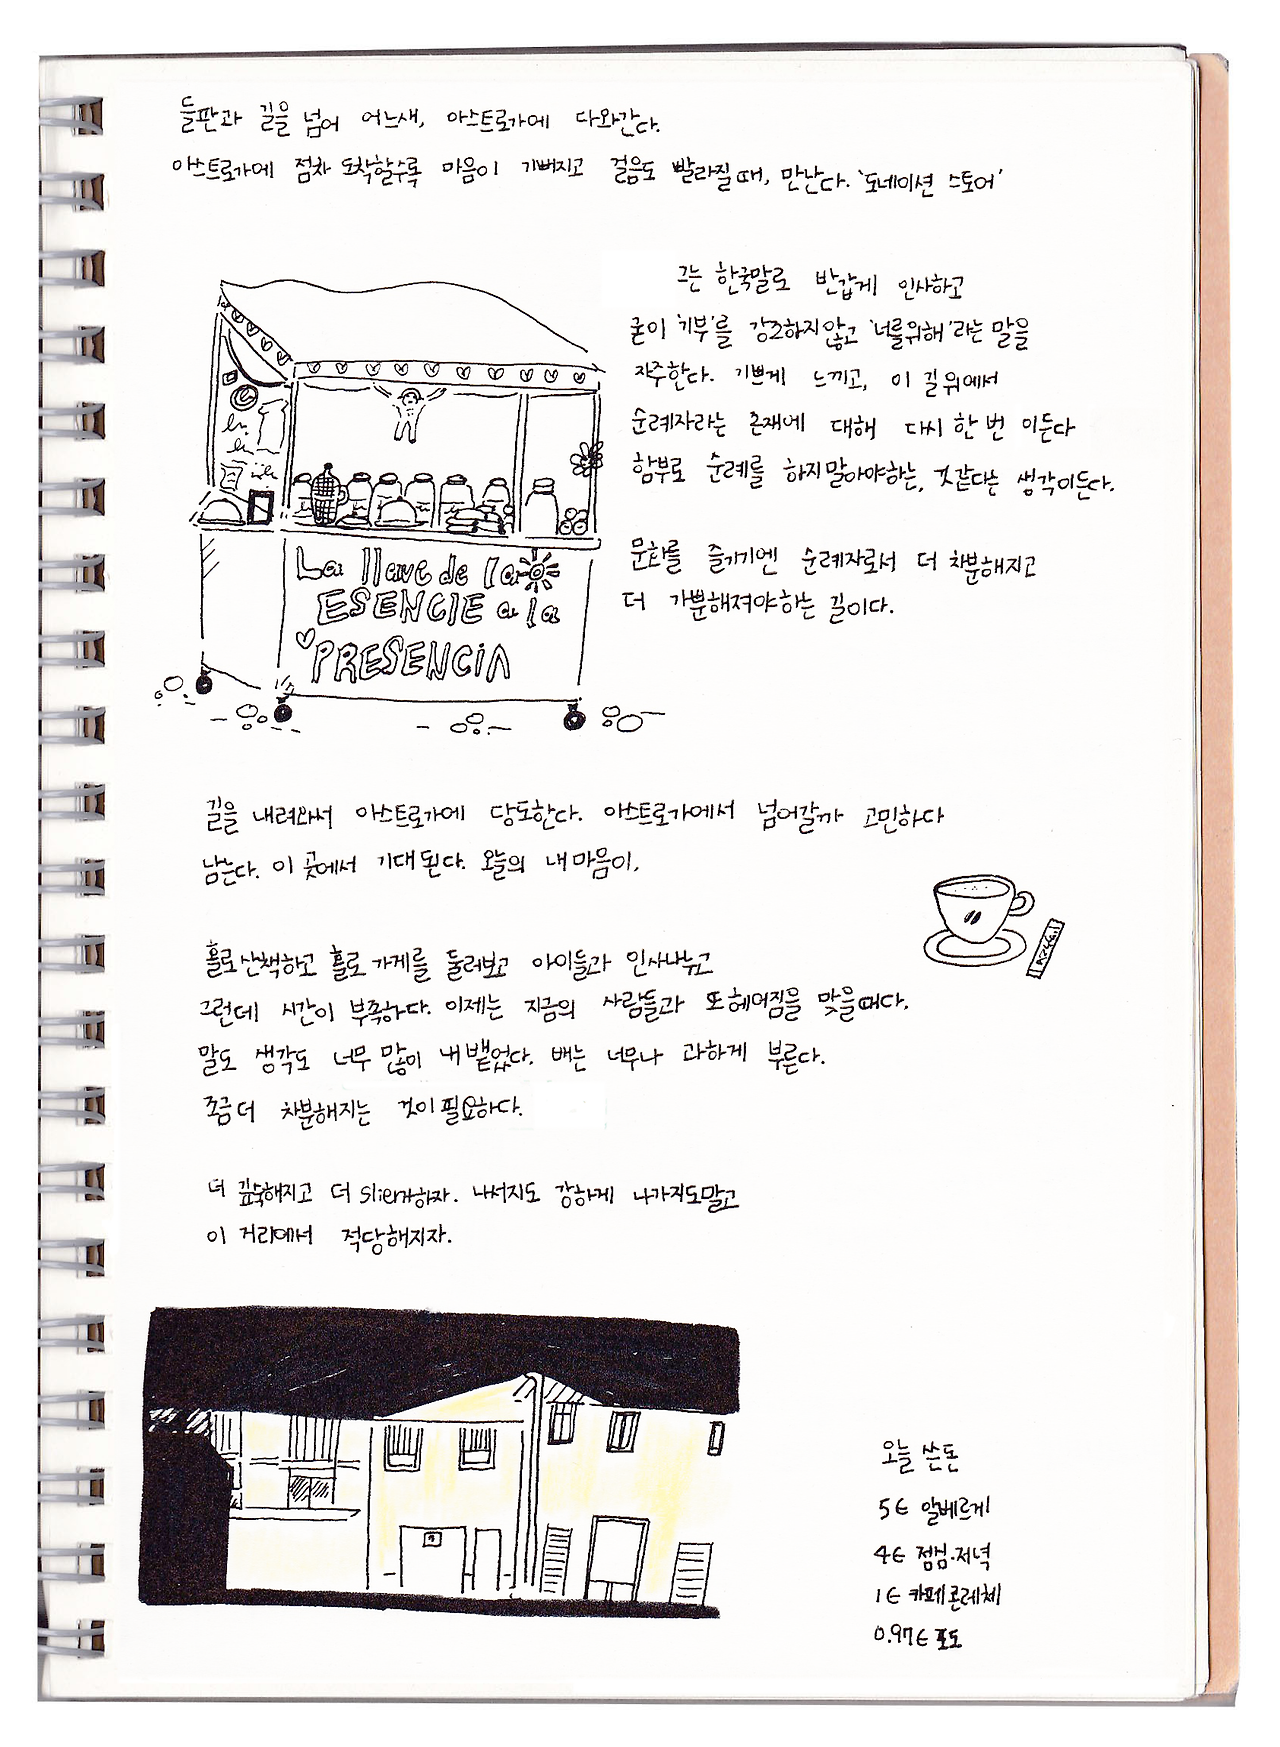 들판과 길을 넘어 어느새, 아스트로가에 다와간다.
아스트로가에 점차 도착할수록 마음이 기뻐지고 걸음도 빨라질 때, 만난다. '도네이션 스토어'
그는 한국말로 반갑게 인사하고
굳이 '기부'를 강조하지않고 '너를위해'라는 말을
자주한다. 기쁘게 느끼고, 이 길 위에서
순례자라는 존재에 대해 다시 한 번 이든다
함부로 순례를 하지말아야하는, 것같다는 생각이든다.
문화를 즐기기엔 순례자로서 더 차분해지고
더 가뿐해져야하는 길이다.
La llave de la
ESENCIE a la
PRESENCIA
길을 내려와서 아스트로가에 당도한다. 아스트로가에서 넘어갈까 고민하다
남는다. 이 곳에서 기대된다. 오늘의 내 마음이.
홀로 산책하고 홀로 가게를 둘러보고 아이들과 인사나누고
그런데 시간이 부족하다. 이제는 지금의 사람들과 또 헤어짐을 맞을때다.
말도 생각도 너무 많이 내뱉었다. 배는 너무나 과하게 부른다.
조금 더 차분해지는 것이 필요하다.
더 깊숙해지고 더 slien가하자. 나서지도 강하게 나가지도말고
이 거리에서 적당해지자.
오늘 쓴돈
5€ 알베르게
4€ 점심·저녁
1€ 카페콘레체
0.97€ 포도